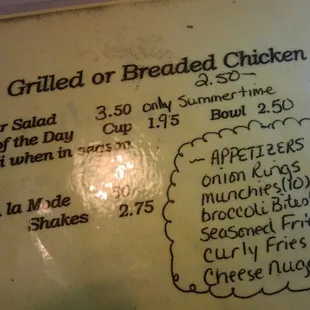 Grilled or Breaded Chicken
2.50
r Salad 3.50 only Summertime
of the Day Cup 1.95 Bowl 2.50
i when in season
a la Mode .50
Shakes 2.75
APPETIZERS
onion Rings
munchies(10)
broccoli Bites
Seasoned Frie
Curly Fries
Cheese Nugg